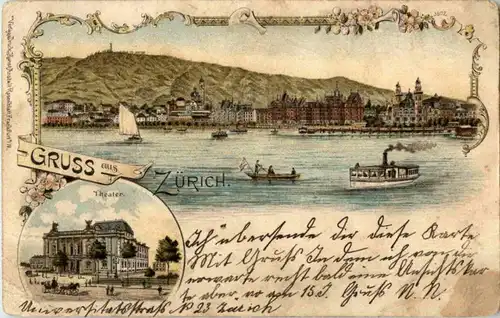 GRUSS aus
ZÜRICH.
Theater.
Ich übersende dir diese Karte
Mit Gruss Indem ich von
erwarte recht bald eine Ansichtskar
te aber, wo am 15 J. Gruss N. N.
Universitätsstrass No 23 Zürich